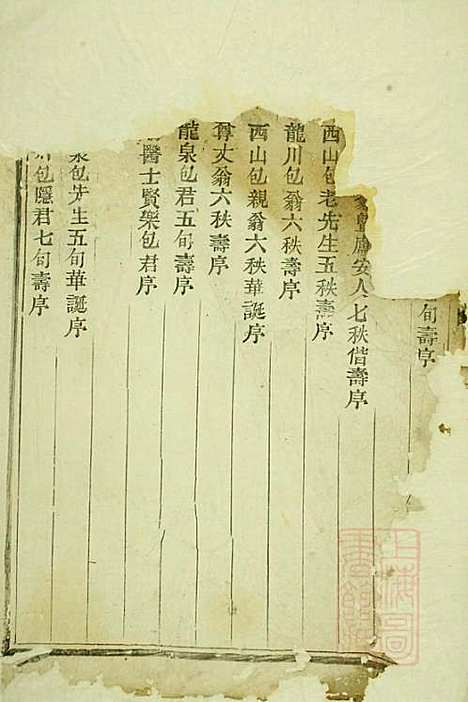 旬壽序
安人七秩偕壽序
西山包老先生五秩壽序
龍川包翁六秩壽序
西山包親翁六秩華誕序
尊丈翁六秩壽序
龍泉包君五旬壽序
醫士賢樂包君序
泉包先生五旬華誕序
包隱君七旬壽序
上海圖書館藏